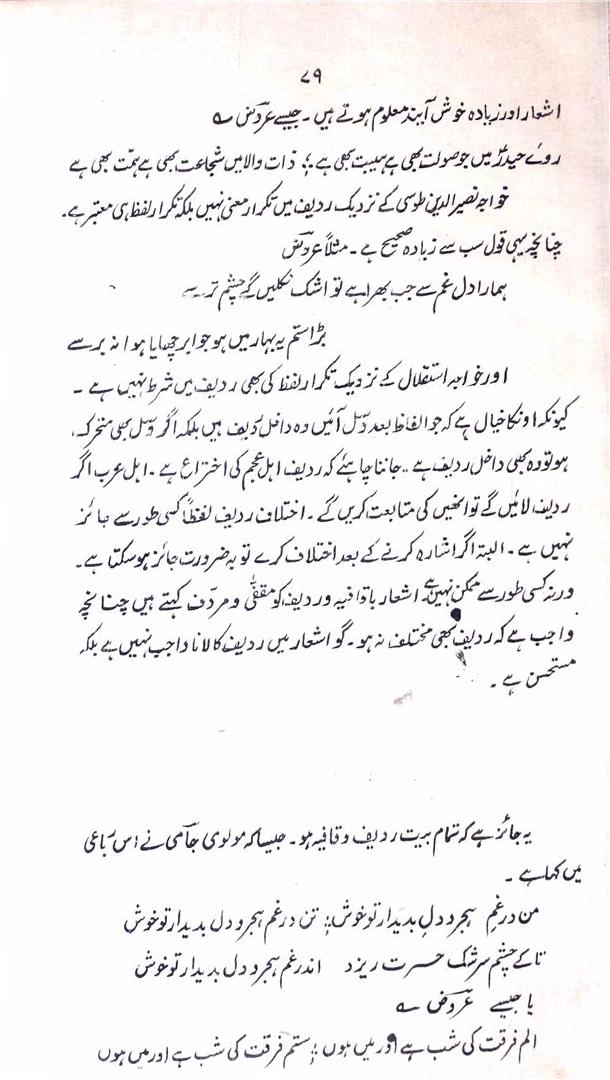 ۷۹
اشعار اور زیادہ خوش آیند معلوم ہوتے ہیں۔ جیسے عروضؔ ؎
روئے حیدرؓ میں جو صولت بھی ہے ہیبت بھی ہے ؛ ذات والا میں شجاعت بھی ہے ہمّت بھی ہے
خواجہ نصیر الدین طوسی کے نزدیک ردیف میں تکرار معنی نہیں بلکہ تکرار لفظ ہی معتبر ہے۔
چنانچہ یہی قول سب سے زیادہ صحیح ہے۔ مثلاً عروضؔ
ہمارا دل غم سے جب بھرا ہے تو اشک نکلیں گے چشم تر سے
بڑا ستم یہ بہار میں ہو جو ابر چھایا ہوا نہ برسے
اور خواجہ استقلال کے نزدیک تکرار لفظ کی بھی ردیف میں شرط نہیں ہے۔
کیونکہ اونکا خیال ہے کہ جو الفاظ بعد وصل آئیں وہ داخل ردیف ہیں بلکہ اگر وصل بھی متحرک
ہو تو وہ بھی داخل ردیف ہے۔ جاننا چاہئے کہ ردیف اہل عجم کی اختراع ہے۔ اہل عرب اگر
ردیف لائیں گے تو انھیں کی متابعت کریں گے۔ اختلاف ردیف لفظاً کسی طور سے جائز
نہیں ہے۔ البتہ اگر اشارہ کرنے کے بعد اختلاف کرے تو بہ ضرورت جائز ہو سکتا ہے۔
ورنہ کسی طور سے ممکن نہیں ہے اشعار با قافیہ و ردیف کو مقفّٰی و مردّف کہتے ہیں چنانچہ
واجب ہے کہ ردیف بھی مختلف نہ ہو۔ گو اشعار میں ردیف کا لانا واجب نہیں ہے بلکہ
مستحسن ہے۔
یہ جائز ہے کہ تمام بیت ردیف و قافیہ ہو۔ جیسا کہ مولوی جامیؔ نے اس رباعی
میں کہا ہے۔
من در غمِ ہجر و دل بدیدار تو خوش ؛ تن در غم ہجر و دل بدیدار تو خوش
تا کے چشم سرشک حسرت ریزد اندر غم ہجر و دل بدیدار تو خوش
یا جیسے عروضؔ ؎
الم فرقت کی شب ہے اور میں ہوں ؛ ستم فرقت کی شب ہے اور میں ہوں